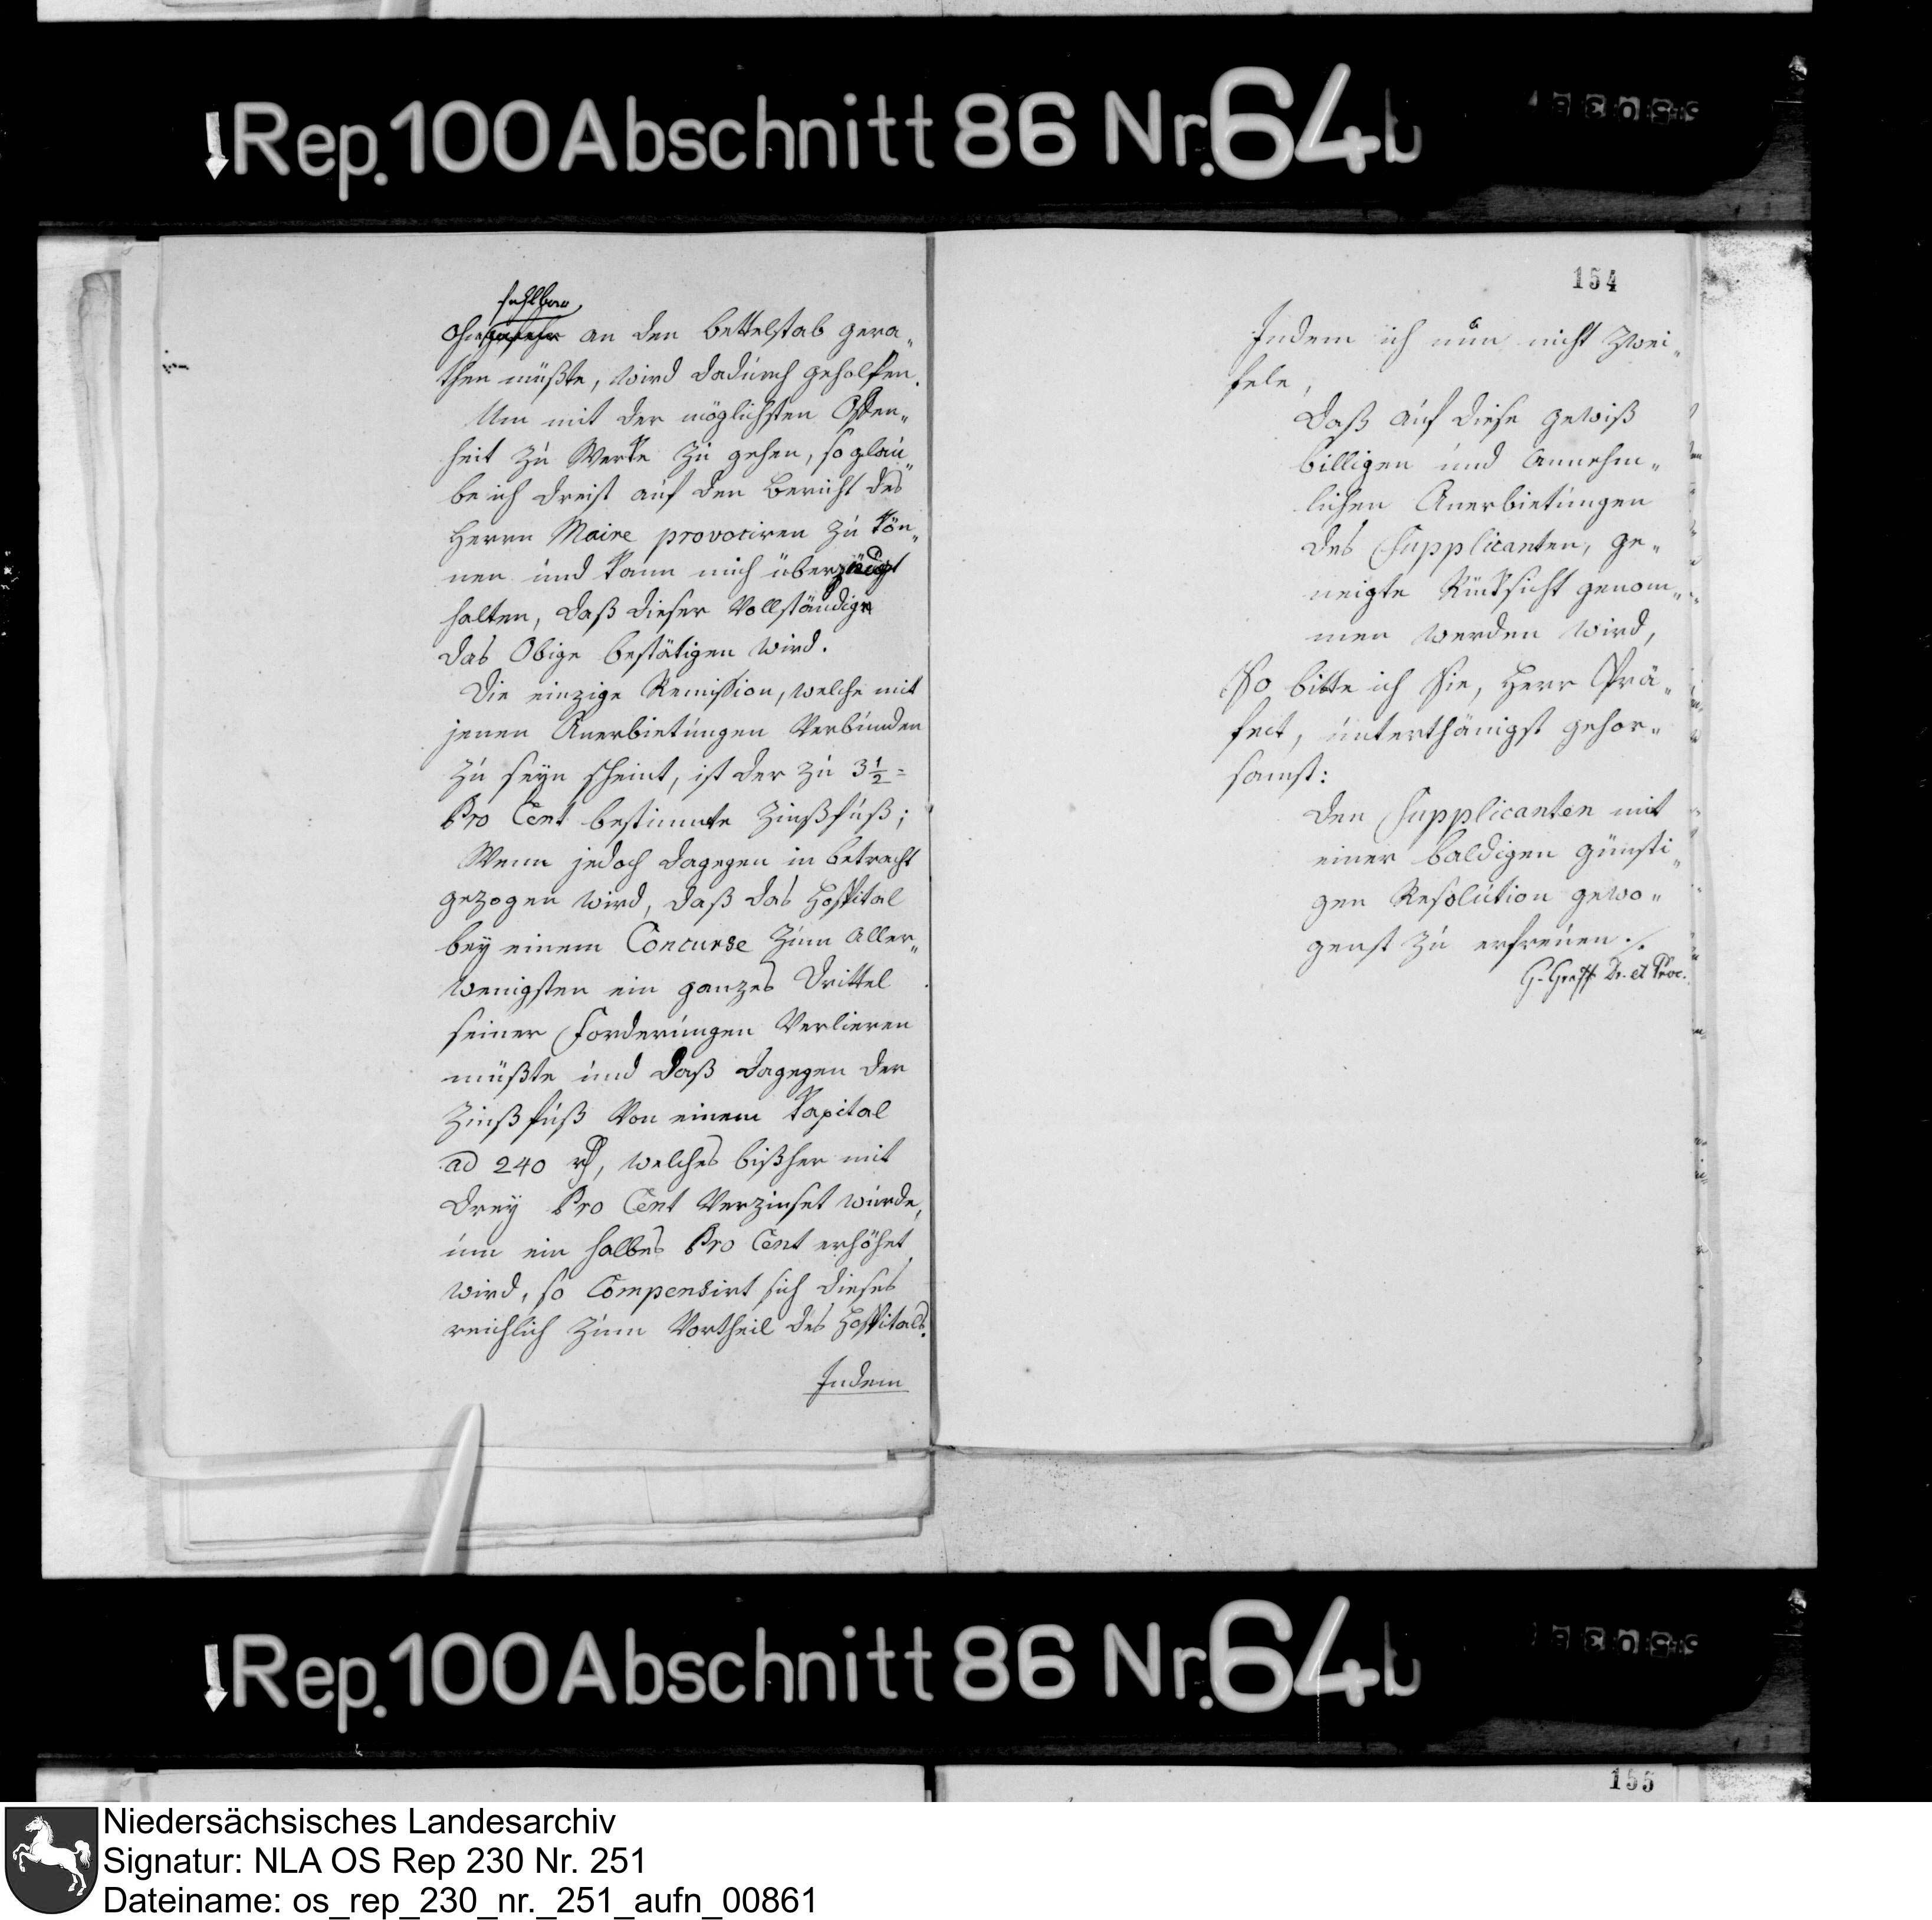 Rep. 100 Abschnitt 86 Nr. 64b
fehlbar
ohngefehr an den Bettelstab gera„
then müßte, wird dadurch geholfen.
Um mit der möglichsten Offen„
heit zu Werke zu gehen, so glau„
be ich dreist auf den Bericht des
Herrn Maire provociren zu kön„
nen und kann mich überzeügt
halten, daß dieser vollständig
das Obige bestätigen wird.
Die einzige Remission, welche mit
jenen Anerbietungen verbunden
zu seyn scheint, ist der zu 3 1/2 =
Pro Cent bestimmte Zinßfuß;
Wenn jedoch dagegen in betracht
gezogen wird, daß das Hospital
bey einem Concurse zum Aller„
wenigsten ein ganzes Drittel
seiner Forderungen verlieren
müßte und daß dagegen der
Zinßfuß von einem Kapital
ad 240 rth, welches bißher mit
drey Pro Cent verzinset wurde,
um ein halbes Pro Cent erhöhet
wird, so Compensirt sich dieses
reichlich zum Vortheil des Hospitals.
Indem
154
Indem ich nun nicht zwei„
fele,
daß auf diese gewiß
billigen und Annehm„
lichen Anerbietungen
des Supplicanten, ge„
neigte Rücksicht genom„
men werden wird,
So bitte ich Sie, Herr Prä„
fect, unterthänigst gehor„
samst:
den Supplicanten mit
einer baldigen günsti„
gen Resolution gewo„
genst zu erfreuen ./.
G. Graff Dr. et Proc.
Rep. 100 Abschnitt 86 Nr. 64b
155
Niedersächsisches Landesarchiv
Signatur: NLA OS Rep 230 Nr. 251
Dateiname: os_rep_230_nr._251_aufn_00861